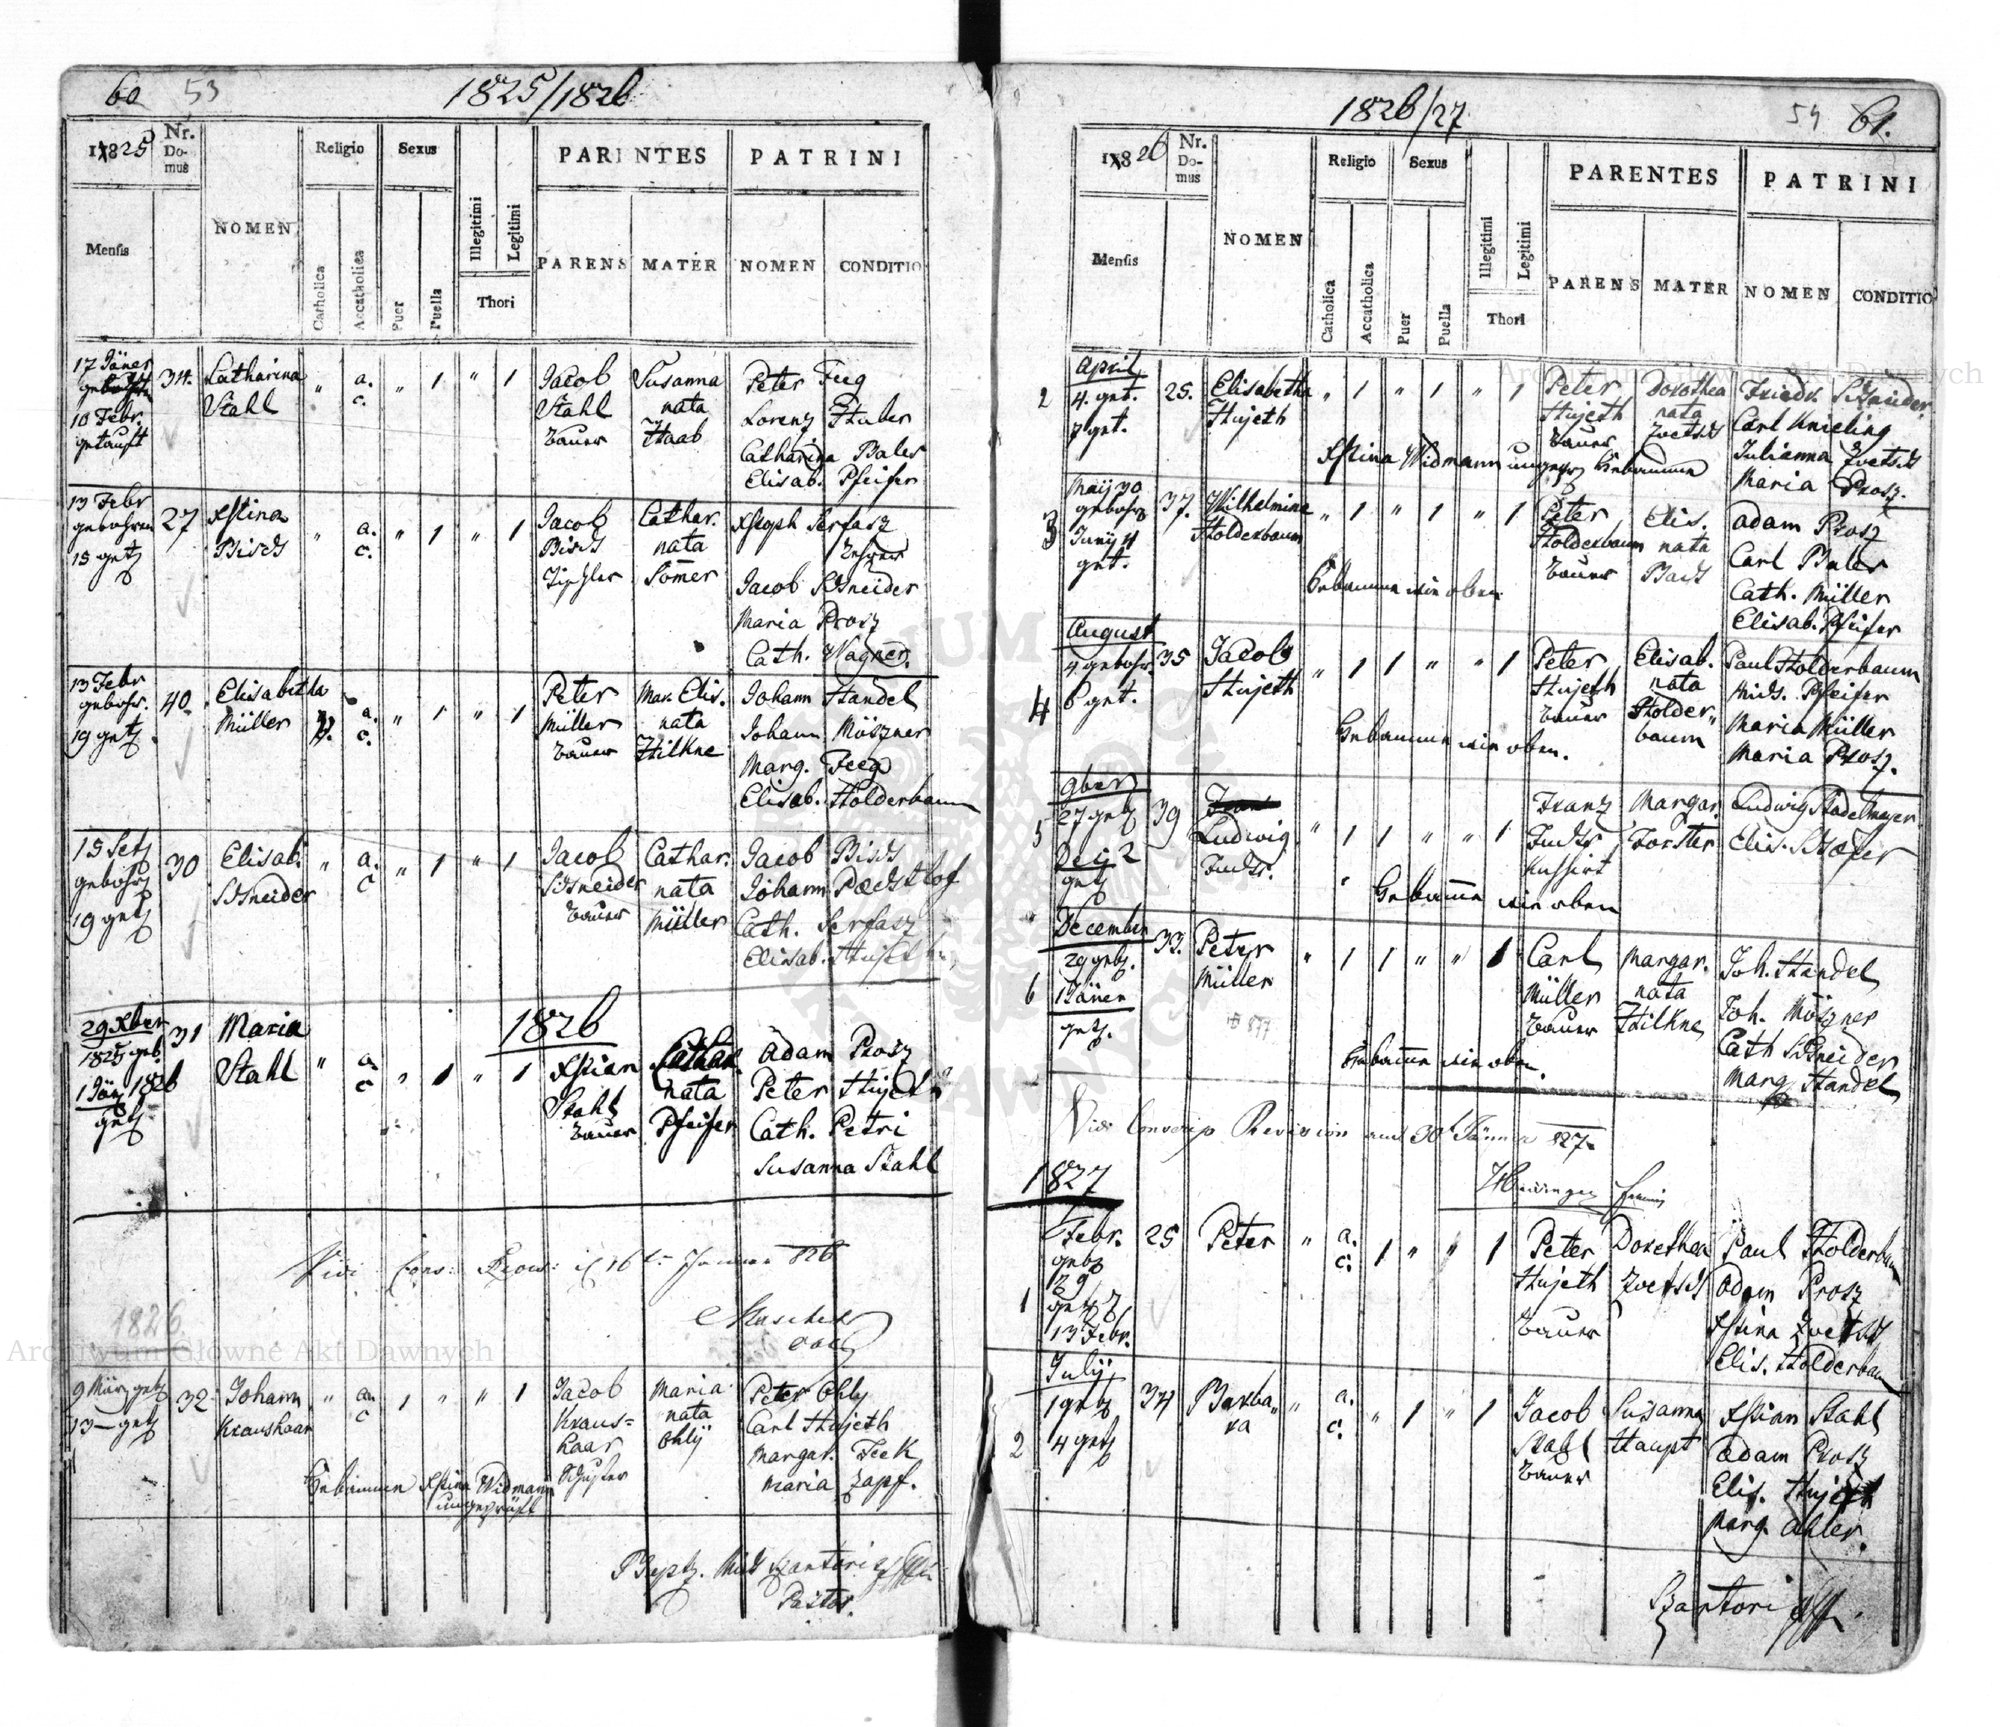 60 53
1825/1826
1825
Nr. Domus
NOMEN
Religio
Sexus
PARENTES
PATRINI
Mensis
Catholica
Accatholica
Puer
Puella
Illegitimi
Legitimi
Thori
PARENS
MATER
NOMEN
CONDITIO
17 Jäner 34. Catharina " a. " 1 " 1 Jacob Susanna Peter Feeg
Stahl c. Stahl nata Lorenz Huber
10 Febr. Bauer Haab Catharina Baler
getauft Elisab. Pfeifer
13 Febr 27 Xstina " a. " 1 " 1 Jacob Cathar. Xstoph Serfasz
gebohren Bisch c. Bisch nata
15 get. Tischler Somer Jacob Schneider
Maria Prosz
Cath. Wagner.
13 Febr 40. Elisabetha a. " 1 " 1 Peter Mar. Elis. Johann Handel
gebohr. Müller c. Müller nata Johann Möszner
19 get. Bauer Hilkne Marg. Feeg
Elisab. Holderbaum
15 30 Elisab. " a. " 1 " 1 Jacob Cathar. Jacob Bisch
gebohr Schneider c Schneider nata Johann
19 get. Bauer Müller Cath. Serfasz
Elisab.
1826
29 Xber 31 Maria " a. " 1 " 1 Xstian Cathar. Adam Prosz
1825 geb. Stahl c Stahl nata Peter Hujeth
1 Jän 1826 Bauer Pfeifer Cath. Petri
get. Susanna Stahl
Vidi
1826
9 März geb 32 Johann " a. 1 " " 1 Jacob Maria Peter Ohly
13 — get Kraushaar c Kraus= nata Carl Hujeth
haar Ohly Margar. Feek
1 Hebamme Xstina Widmann Schuster Maria Zapf.
ungeprüft
Bapt. Sartorius
Pastor.
54 61.
1826/27
1826
Nr. Domus
NOMEN
Religio
Sexus
PARENTES
PATRINI
Mensis
Catholica
Accatholica
Puer
Puella
Illegitimi
Legitimi
Thori
PARENS
MATER
NOMEN
CONDITIO
April
2 4. get. 25. Elisabetha " 1 " 1 " 1 Peter Dorothea Friedr Schneider.
7 get. Hujeth Hujeth nata Carl Knieling
Bauer Zvetsch Julianna Zvetsch
Xstina Widmann ungepr Hebamme Maria Prosz.
Maij 30 37. Wilhelmine " 1 " 1 " 1 Peter Elis. Adam Prosz
3 gebohr Holderbaum Holderbaum nata Carl Baler
Junij 4 Bauer Bach Cath. Müller
get. Hebamme wie oben Elisab. Pfeifer
August
4 gebohr. 35 Jacob " 1 1 " " 1 Peter Elisab. Paul Holderbaum
4 6 get. Hujeth Hujeth nata Mich. Pfeifer
Bauer Holder- Maria Müller
Hebamme wie oben. baum Maria Prosz.
9ber
27 geb 39 Ludwig " 1 1 " " 1 Franz Margar. Ludwig Stadelmayer
5 2 Fuchs. Fuchs Forster Elis. Schäfer
get Hebamme wie oben
December
29 geb. 33. Peter " 1 1 " " 1 Carl Margar. Joh. Handel
6 1 Jäner Müller Müller nata Joh. Möszner
get. Bauer Hilkne Cath Schneider
Hebamme wie oben. Marg Handel
Vidi Conscrip Revision am 30 Jänner 827.
1827
Febr. 25 Peter " a. 1 " " 1 Peter Dorethea Paul Holderbaum
geb c. Hujeth Zvetsch Adam Prosz
1 Bauer Xstina Zvetsch
13 Febr. Elis. Holderbau
Julij
1 geb 34 Barba- " a. " 1 " 1 Jacob Susanna Xstian Stahl
2 4 get ra c. Stahl Haupt Adam Prosz
Bauer Elis. Hujeth
Marg. Ahler.
Sartori
Archiwum Główne Akt Dawnych
Archiwum Główne Akt Dawnych